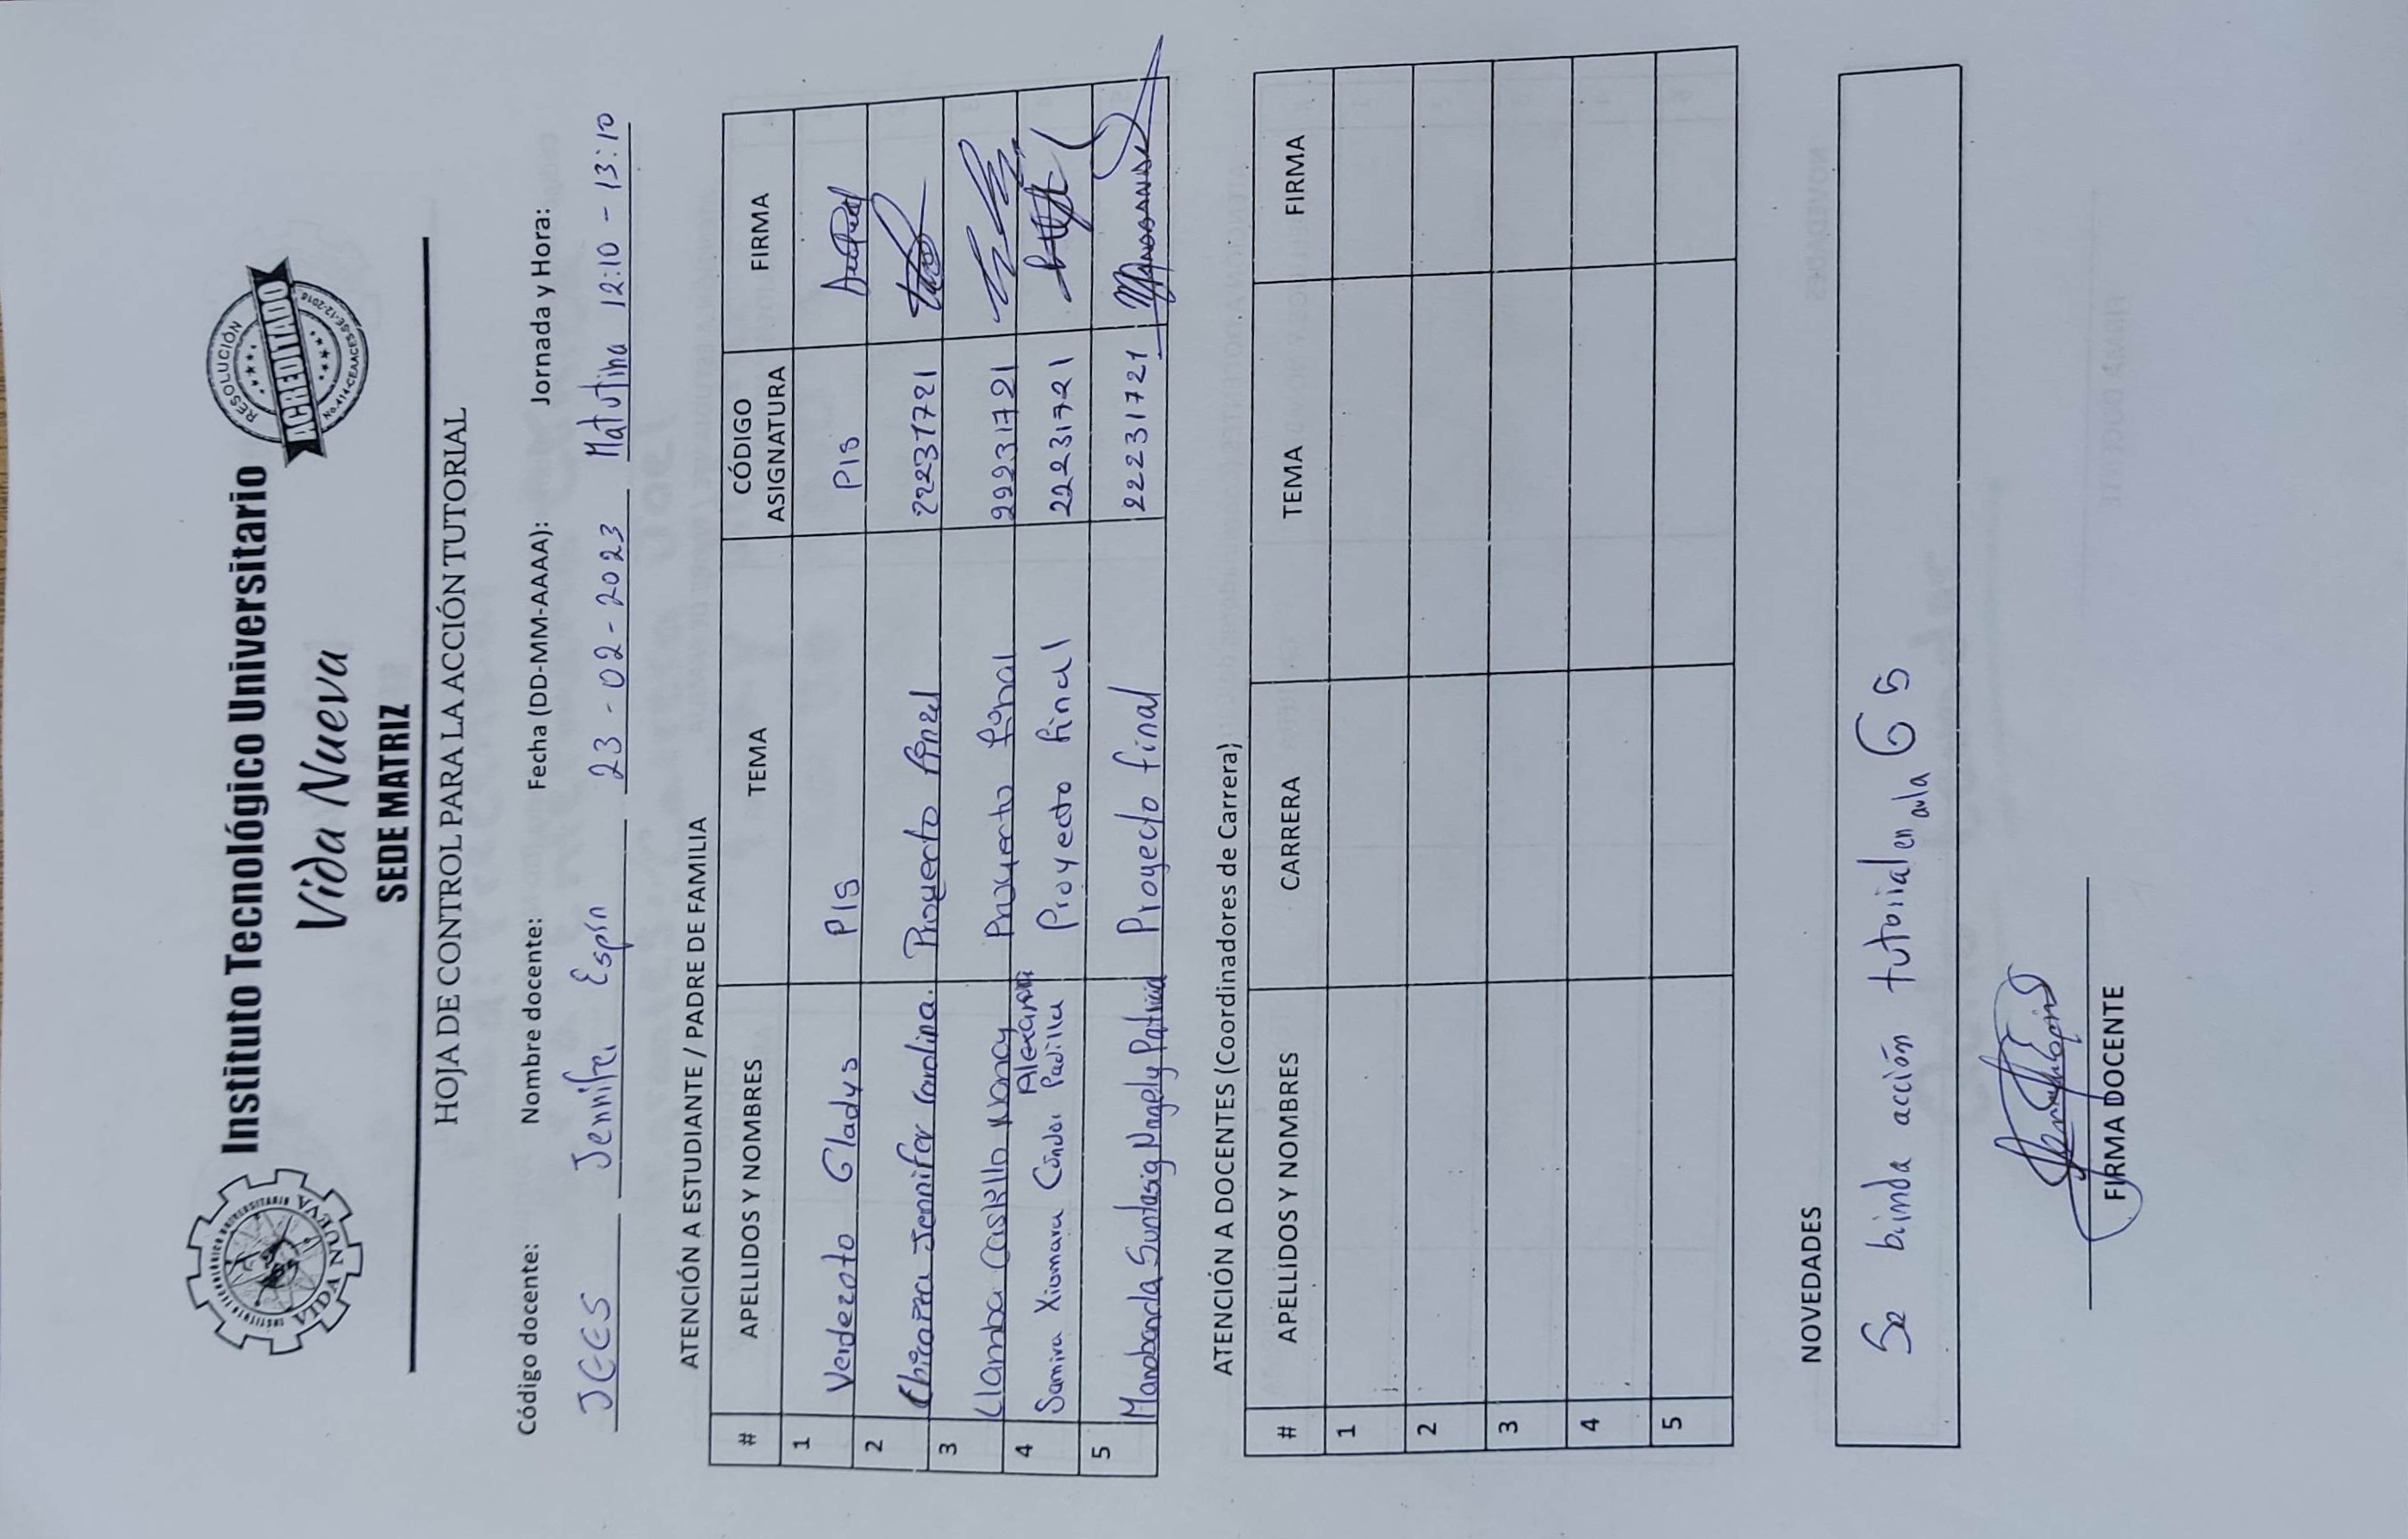 INSTITUTO TECNOLÓGICO UNIVERSITARIO
VIDA NUEVA
Instituto Tecnológico Universitario
Vida Nueva
SEDE MATRIZ
RESOLUCIÓN
ACREDITADO
No.414-CEAACES-SE-12-2016
HOJA DE CONTROL PARA LA ACCIÓN TUTORIAL
Código docente: Nombre docente: Fecha (DD-MM-AAAA): Jornada y Hora:
JEES Jennifer Espín 23-02-2023 Matutina 12:10 - 13:10
ATENCIÓN A ESTUDIANTE / PADRE DE FAMILIA
# APELLIDOS Y NOMBRES TEMA CÓDIGO ASIGNATURA FIRMA
1 Verdezoto Gladys PIS PIS
2 Jennifer Carolina. Proyecto final 22231721
3 Llamba Castello Nancy Proyecto final 22231721
Alexandra
4 Samira Xiomara Cóndor Padilla Proyecto final 22231721
5 Manobanda Suntasig Nagely Patricia Proyecto final 22231721 Manobanda
ATENCIÓN A DOCENTES (Coordinadores de Carrera)
# APELLIDOS Y NOMBRES CARRERA TEMA FIRMA
1
2
3
4
5
NOVEDADES
Se brinda acción tutorial en aula G5
FIRMA DOCENTE